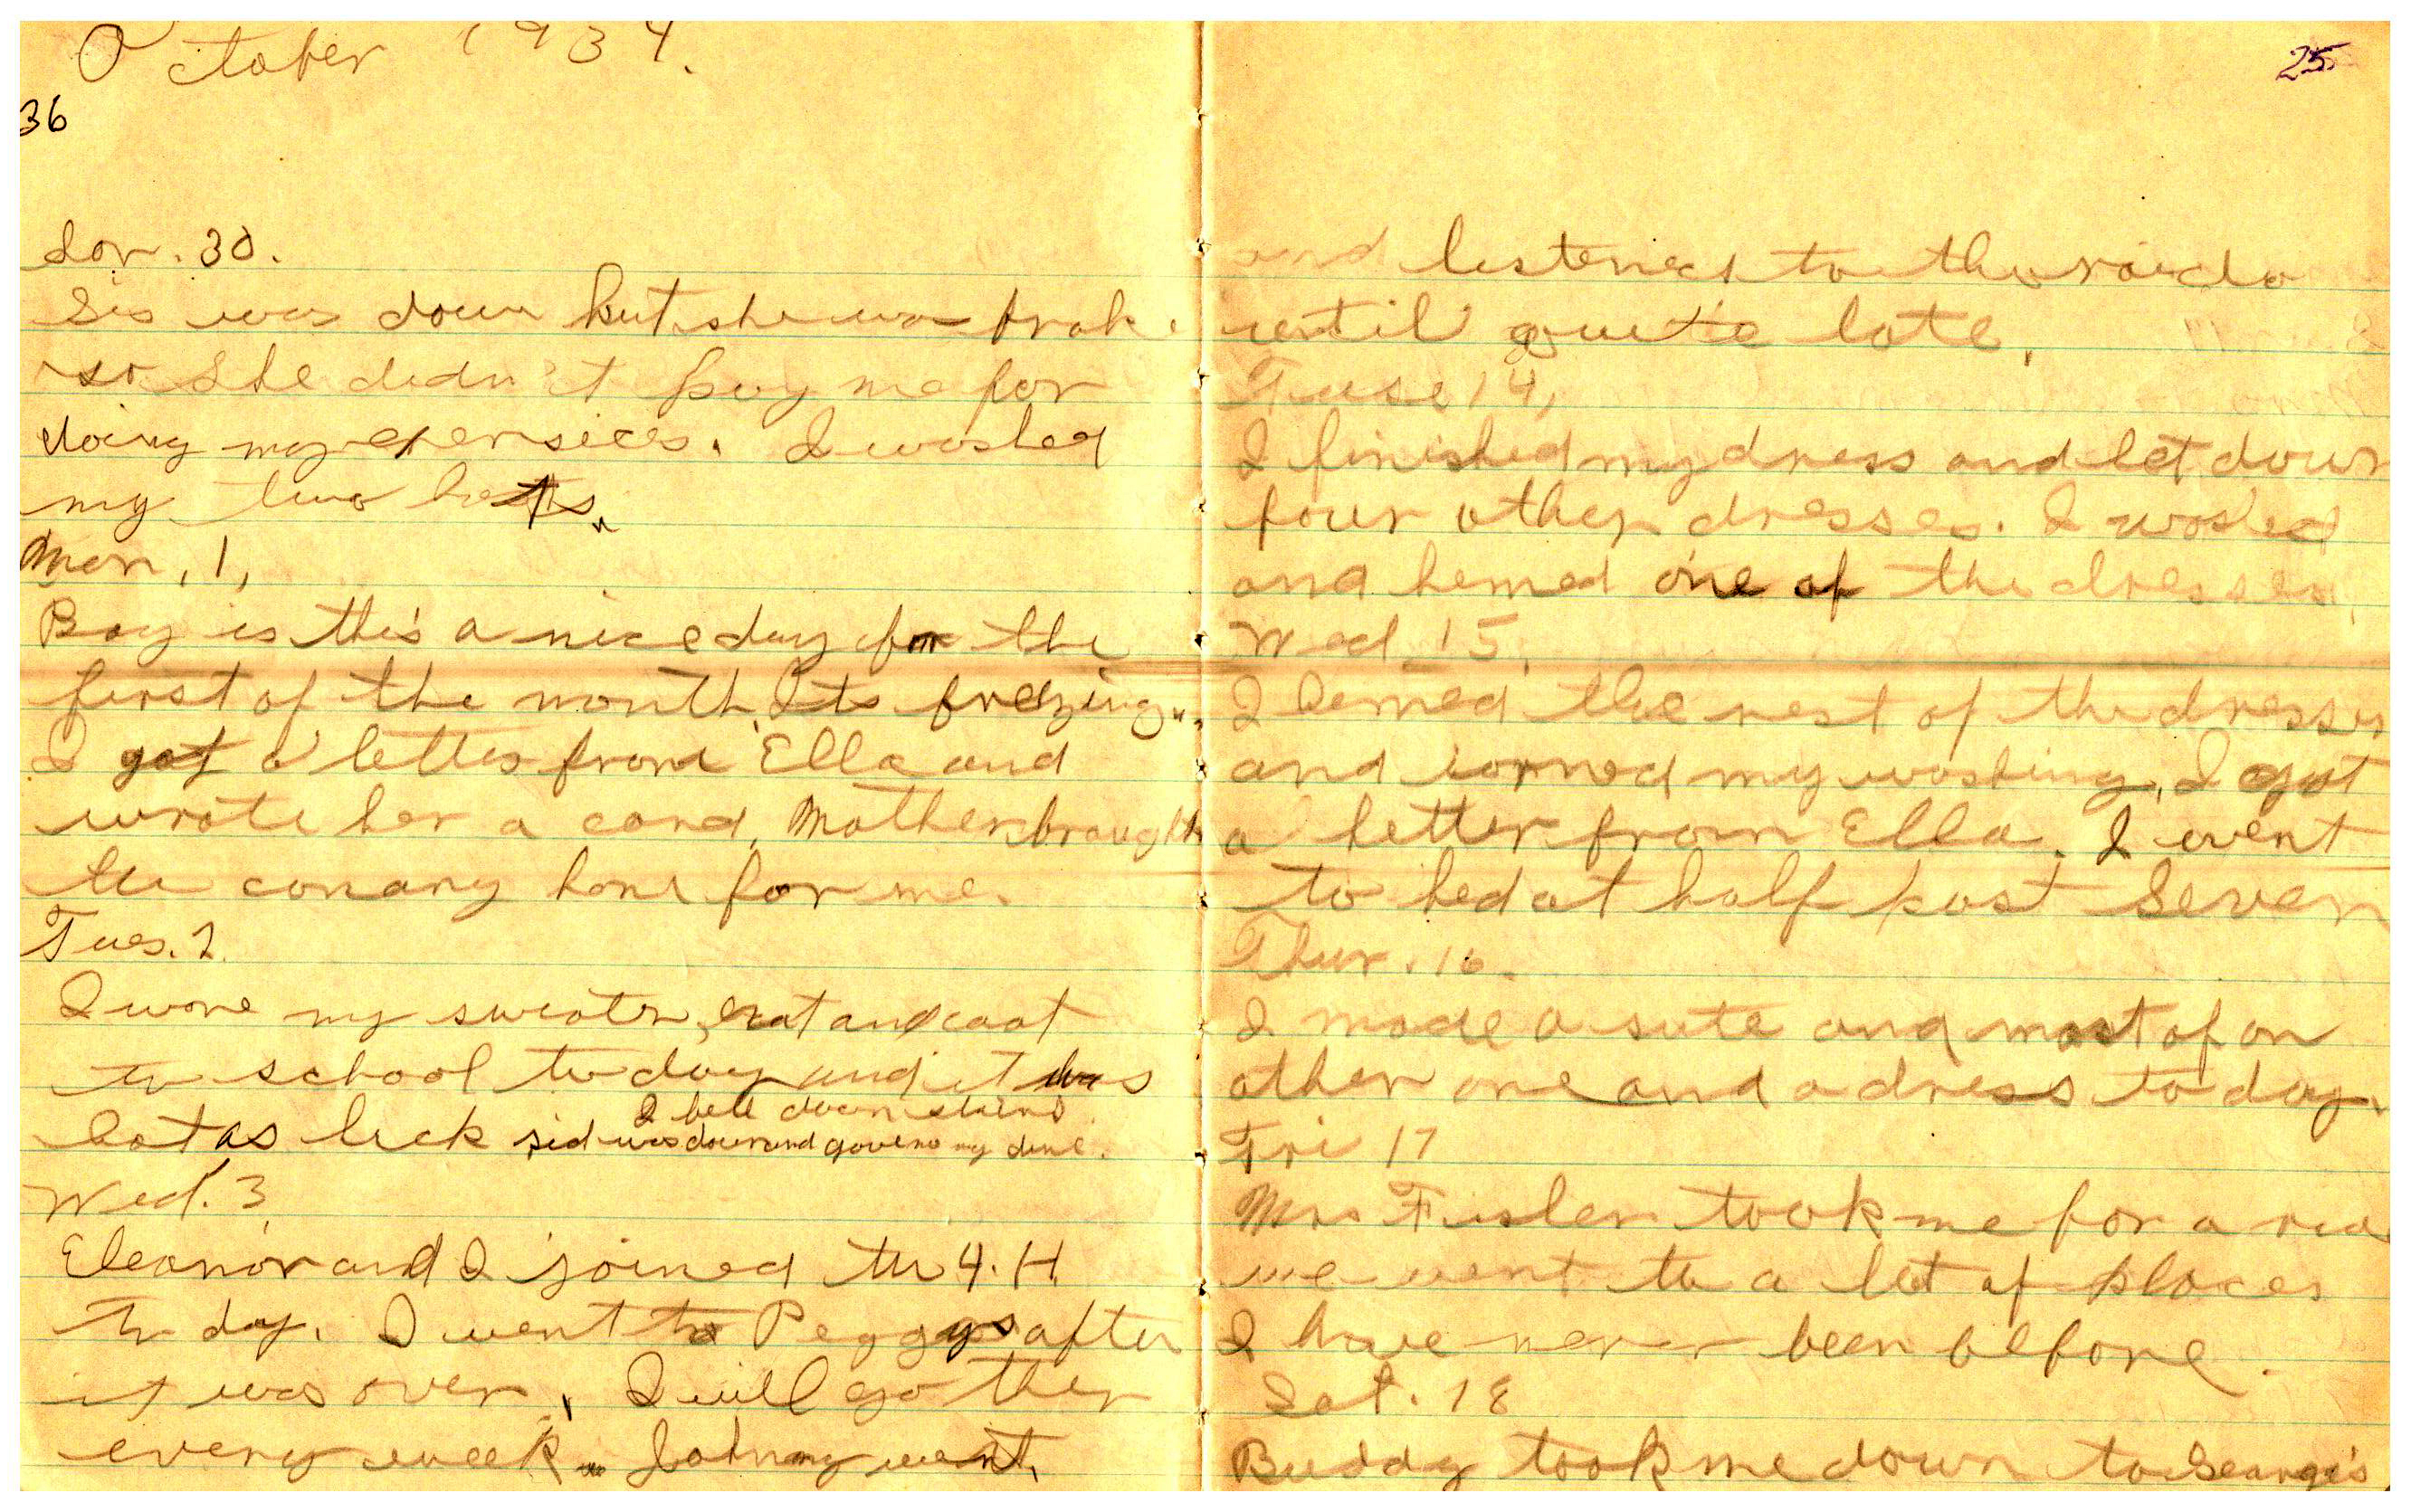 October 1934.
36
Son. 30.
Sis was down but she was brok
so She didn't pay me for
doing my expensices. I washed
my two hats.
Mon, 1,
Boy is this a nice day for the
first of the month. Its frezing.
I got a letter from Ella and
wrote her a card, Mother brought
the conary home for me.
Tues. 2.
I wore my sweatr, hat and coat
to school to day and it was
hot as heck
I fell down stairs
sid was down and gave me my dime.
Wed. 3
Eleanor and I joined the 4. H.
to day. I went to Peggys after
it was over. I will go ther
every week. Johnny went.
25
and listened to the raido
until quite late.
Tuse 14,
I finished my dress and let down
four other dresses. I washed
and hemed one of the dresses,
Wed 15.
I hemed the rest of the dresses
and iorned my washing, I got
a letter from Ella. I went
to bed at half past Seven
Thur. 16.
I made a sute and most of an
other one and a dress to day.
Fri 17
Mrs Fisler took me for a ride
we went to a lot of places
I have never been before.
Sat. 18
Buddy took me down to George's